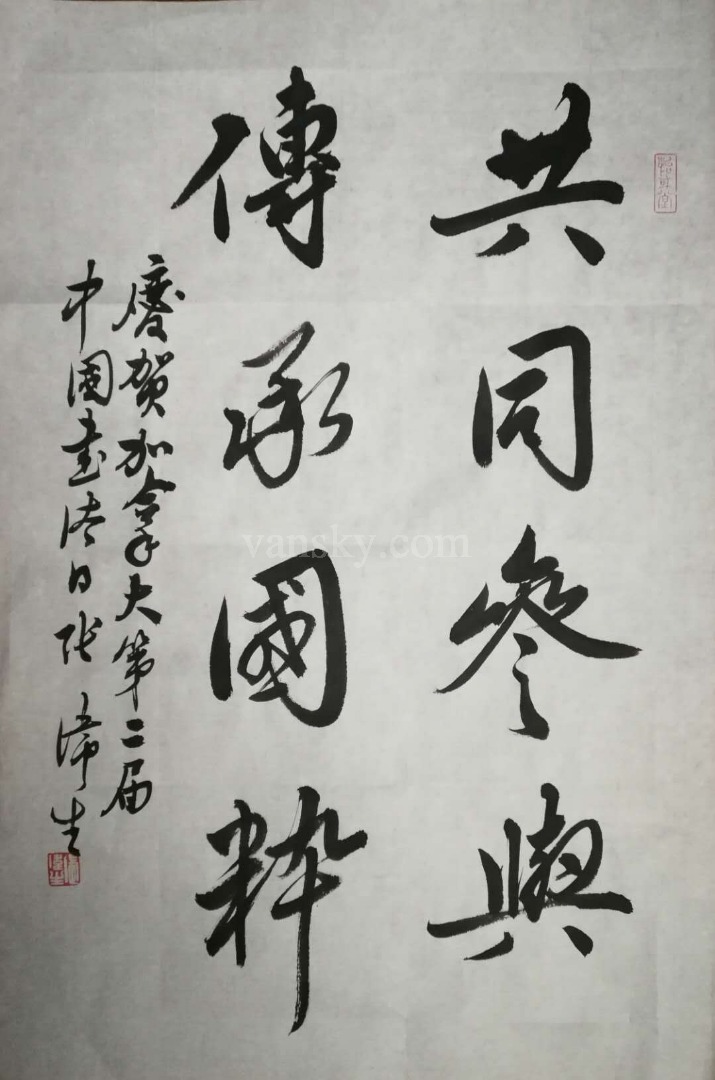 共同參與
傳承國粹
慶賀加拿大第二届
中國書法日張渧生
vansky.com